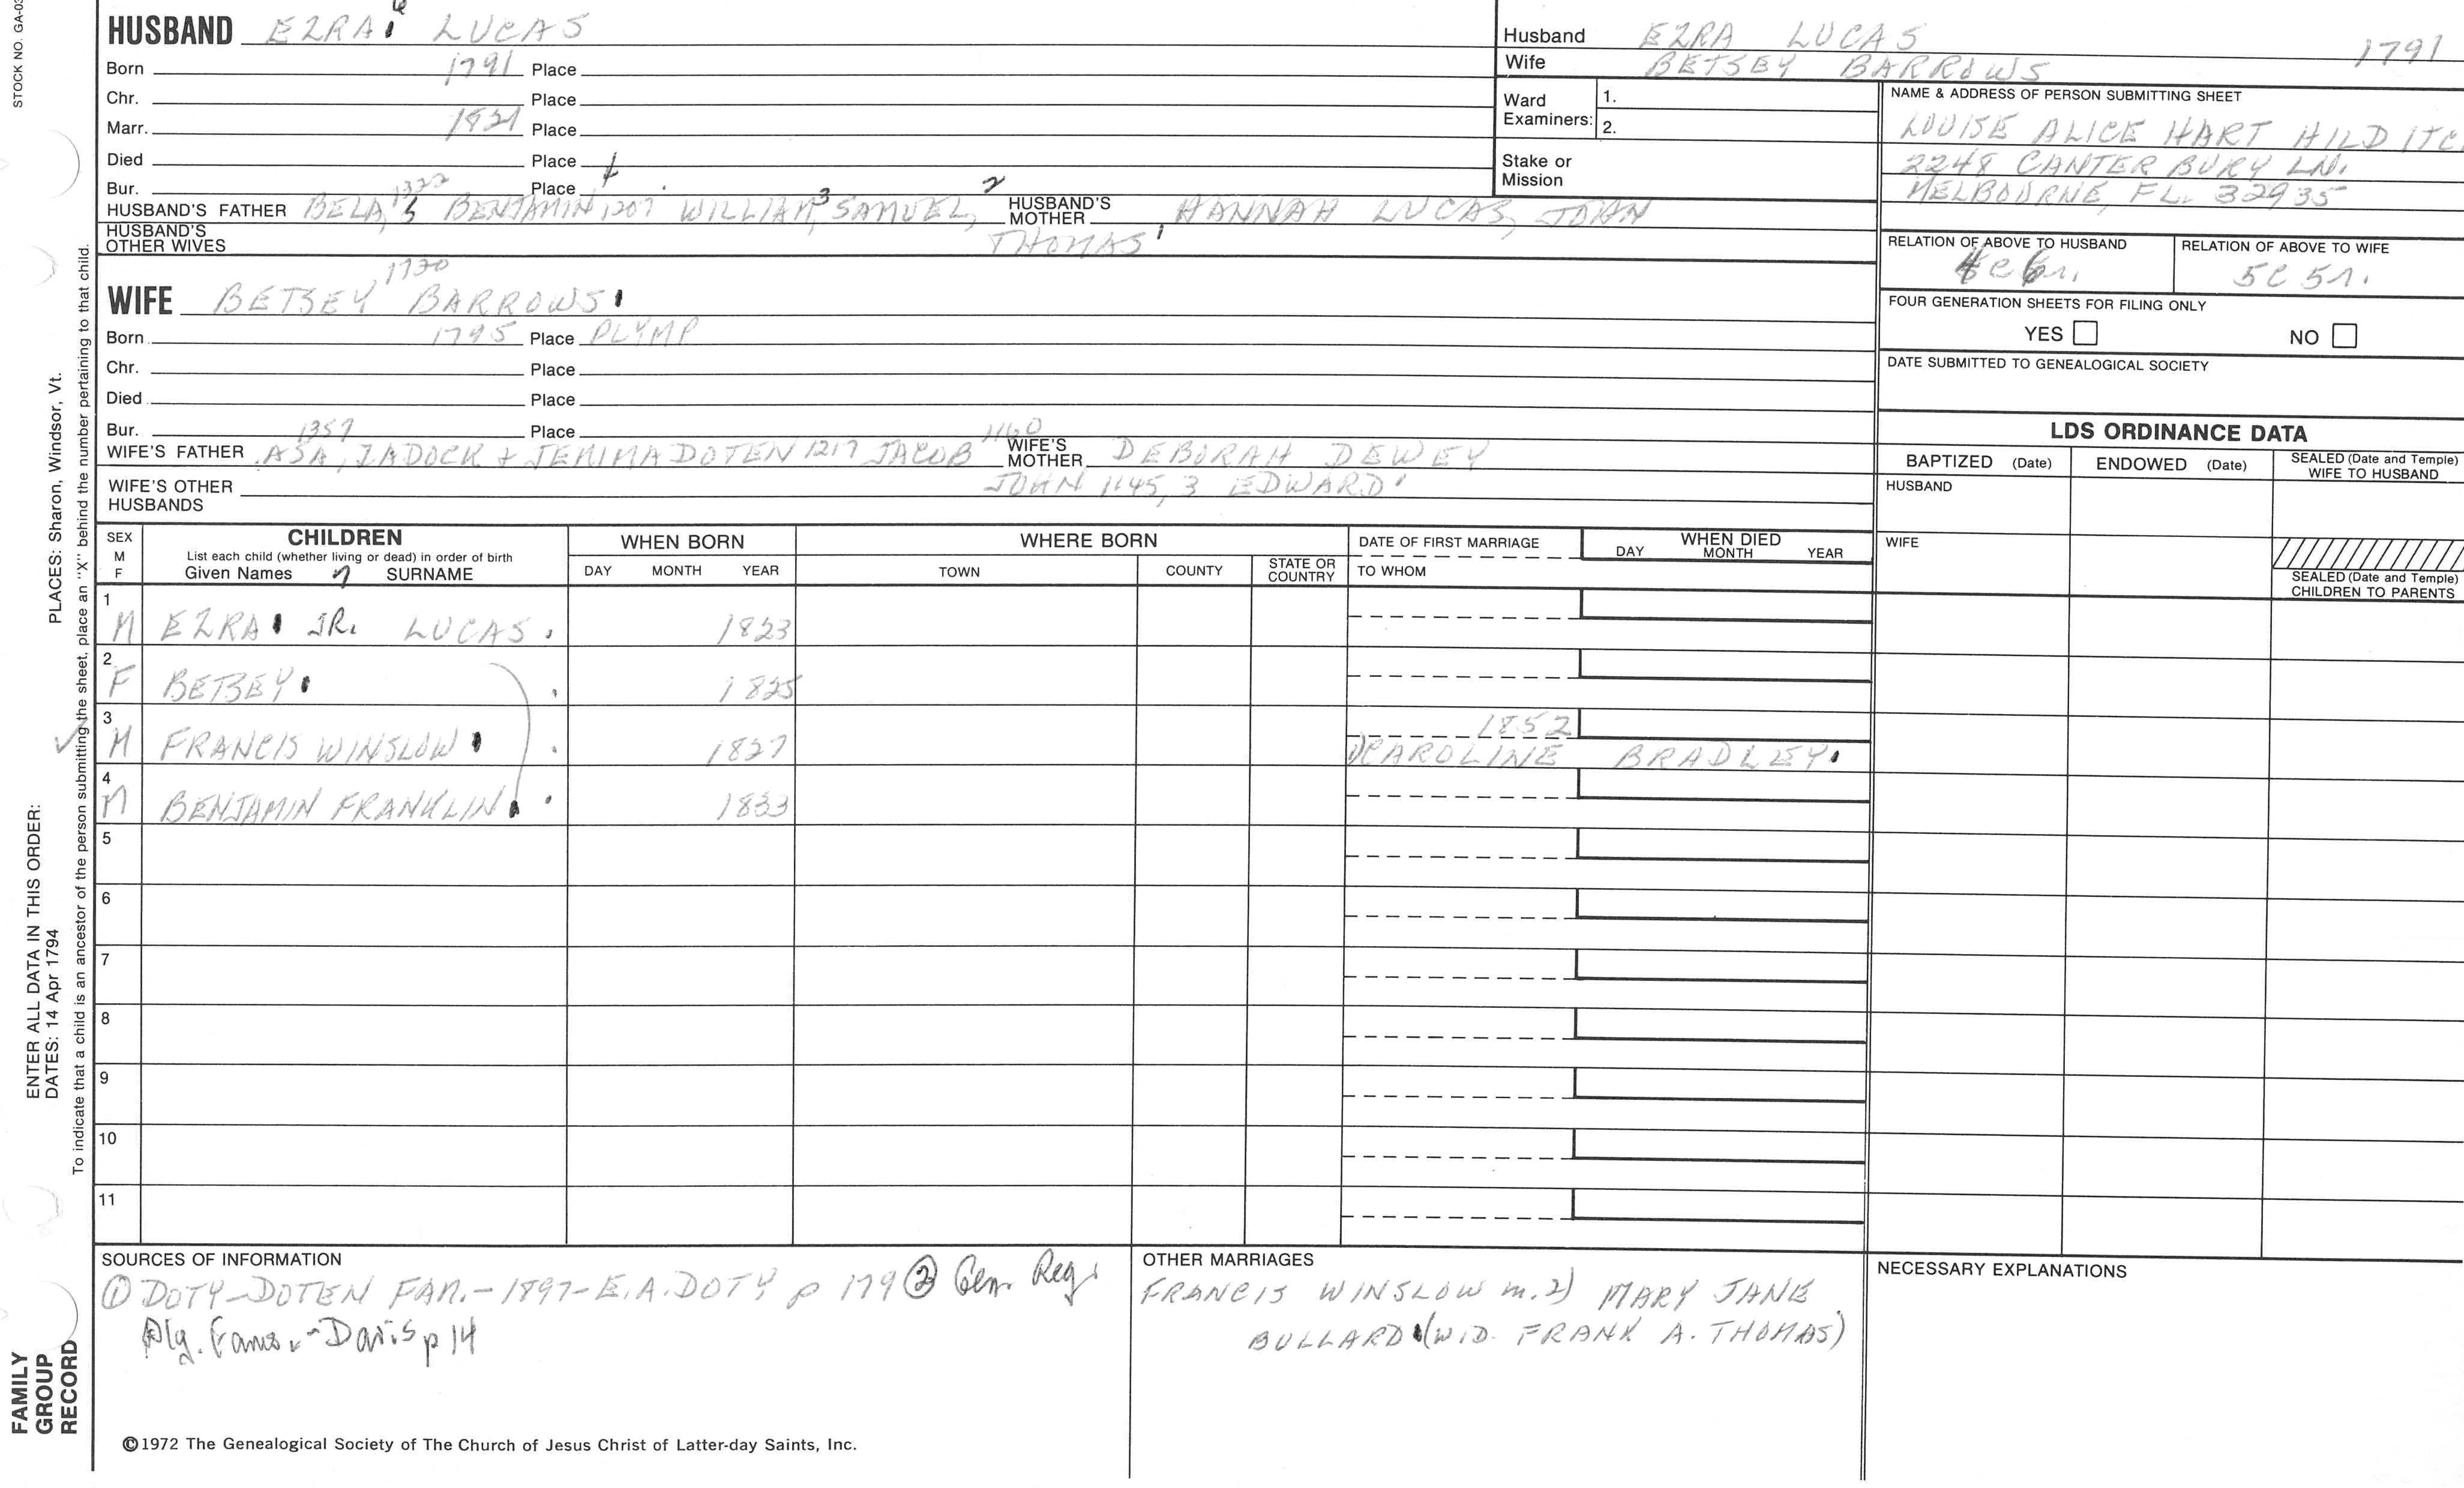 STOCK NO. GA-03
HUSBAND EZRA 6 LUCAS
Born 1791 Place
Chr. Place
Marr. 1821 Place
Died Place
Bur. Place
1322
HUSBAND'S FATHER BELA, 5 BENJAMIN 1207 WILLIAM, 3 SAMUEL, 2 HUSBAND'S MOTHER HANNAH LUCAS, JOHN
HUSBAND'S OTHER WIVES THOMAS 1
1730
WIFE BETSEY BARROWS
Born 1795 Place PLYMP
Chr. Place
Died Place
Bur. Place
1357 1160
WIFE'S FATHER ASA, ZADOCK + JEMIMA DOTEN 1217 JACOB WIFE'S MOTHER DEBORAH DEWEY
WIFE'S OTHER HUSBANDS JOHN 1145, 3 EDWARD 1
Husband EZRA LUCAS 1791
Wife BETSEY BARROWS
Ward Examiners: 1.
2.
Stake or Mission
NAME & ADDRESS OF PERSON SUBMITTING SHEET
LOUISE ALICE HART HILD ITC
2248 CANTER BURY LN.
MELBOURNE, FL. 32935
RELATION OF ABOVE TO HUSBAND RELATION OF ABOVE TO WIFE
5C 5r.
FOUR GENERATION SHEETS FOR FILING ONLY
YES NO
DATE SUBMITTED TO GENEALOGICAL SOCIETY
LDS ORDINANCE DATA
BAPTIZED (Date) ENDOWED (Date) SEALED (Date and Temple) WIFE TO HUSBAND
HUSBAND
WIFE
SEALED (Date and Temple) CHILDREN TO PARENTS
SEX M F CHILDREN WHEN BORN WHERE BORN DATE OF FIRST MARRIAGE WHEN DIED
List each child (whether living or dead) in order of birth
Given Names 7 SURNAME DAY MONTH YEAR TOWN COUNTY STATE OR COUNTRY TO WHOM DAY MONTH YEAR
1 M EZRA JR. LUCAS. 1823
2 F BETSEY 1825
3 M FRANCIS WINSLOW 1827 1852
1) CAROLINE BRADLEY
4 M BENJAMIN FRANKLIN 1833
5
6
7
8
9
10
11
SOURCES OF INFORMATION
① DOTY-DOTEN FAM.-1897-E.A.DOTY p 179 ② Gen. Reg.
Ply. Fams.-Davis p 14
OTHER MARRIAGES
FRANCIS WINSLOW m. 2) MARY JANE
BULLARD (WID. FRANK A. THOMAS)
NECESSARY EXPLANATIONS
©1972 The Genealogical Society of The Church of Jesus Christ of Latter-day Saints, Inc.
FAMILY
GROUP
RECORD
ENTER ALL DATA IN THIS ORDER:
DATES: 14 Apr 1794 PLACES: Sharon, Windsor, Vt.
To indicate that a child is an ancestor of the person submitting the sheet, place an "X" behind the number pertaining to that child.